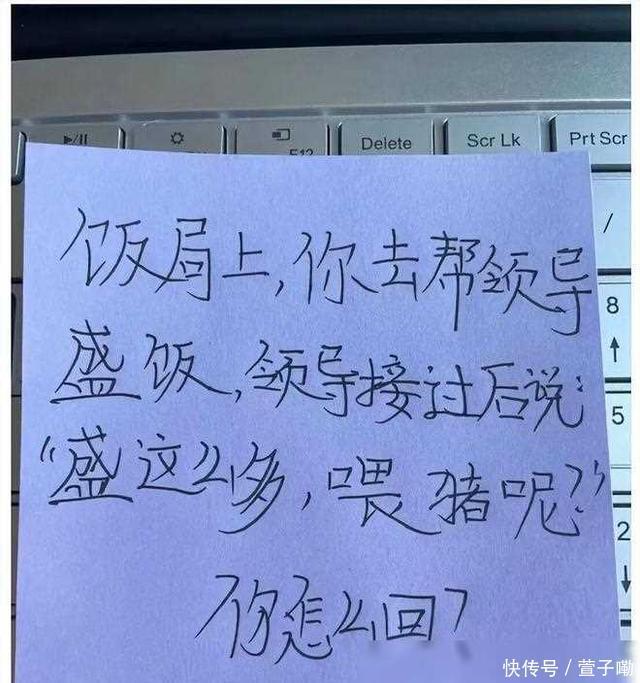 Delete
Scr Lk
Prt Scr
F12
/
8
↑
5
2
↓
饭局上,你去帮领导
盛饭,领导接过后说:
“盛这么多,喂猪呢?”
你怎么回?
快传号/萱子嘞